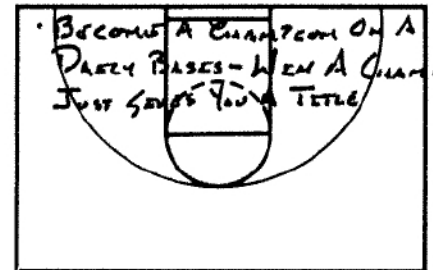 · BECOME A CHAMPION ON A
DAILY BASES - WIN A CHAM
JUST GIVES YOU A TITLE